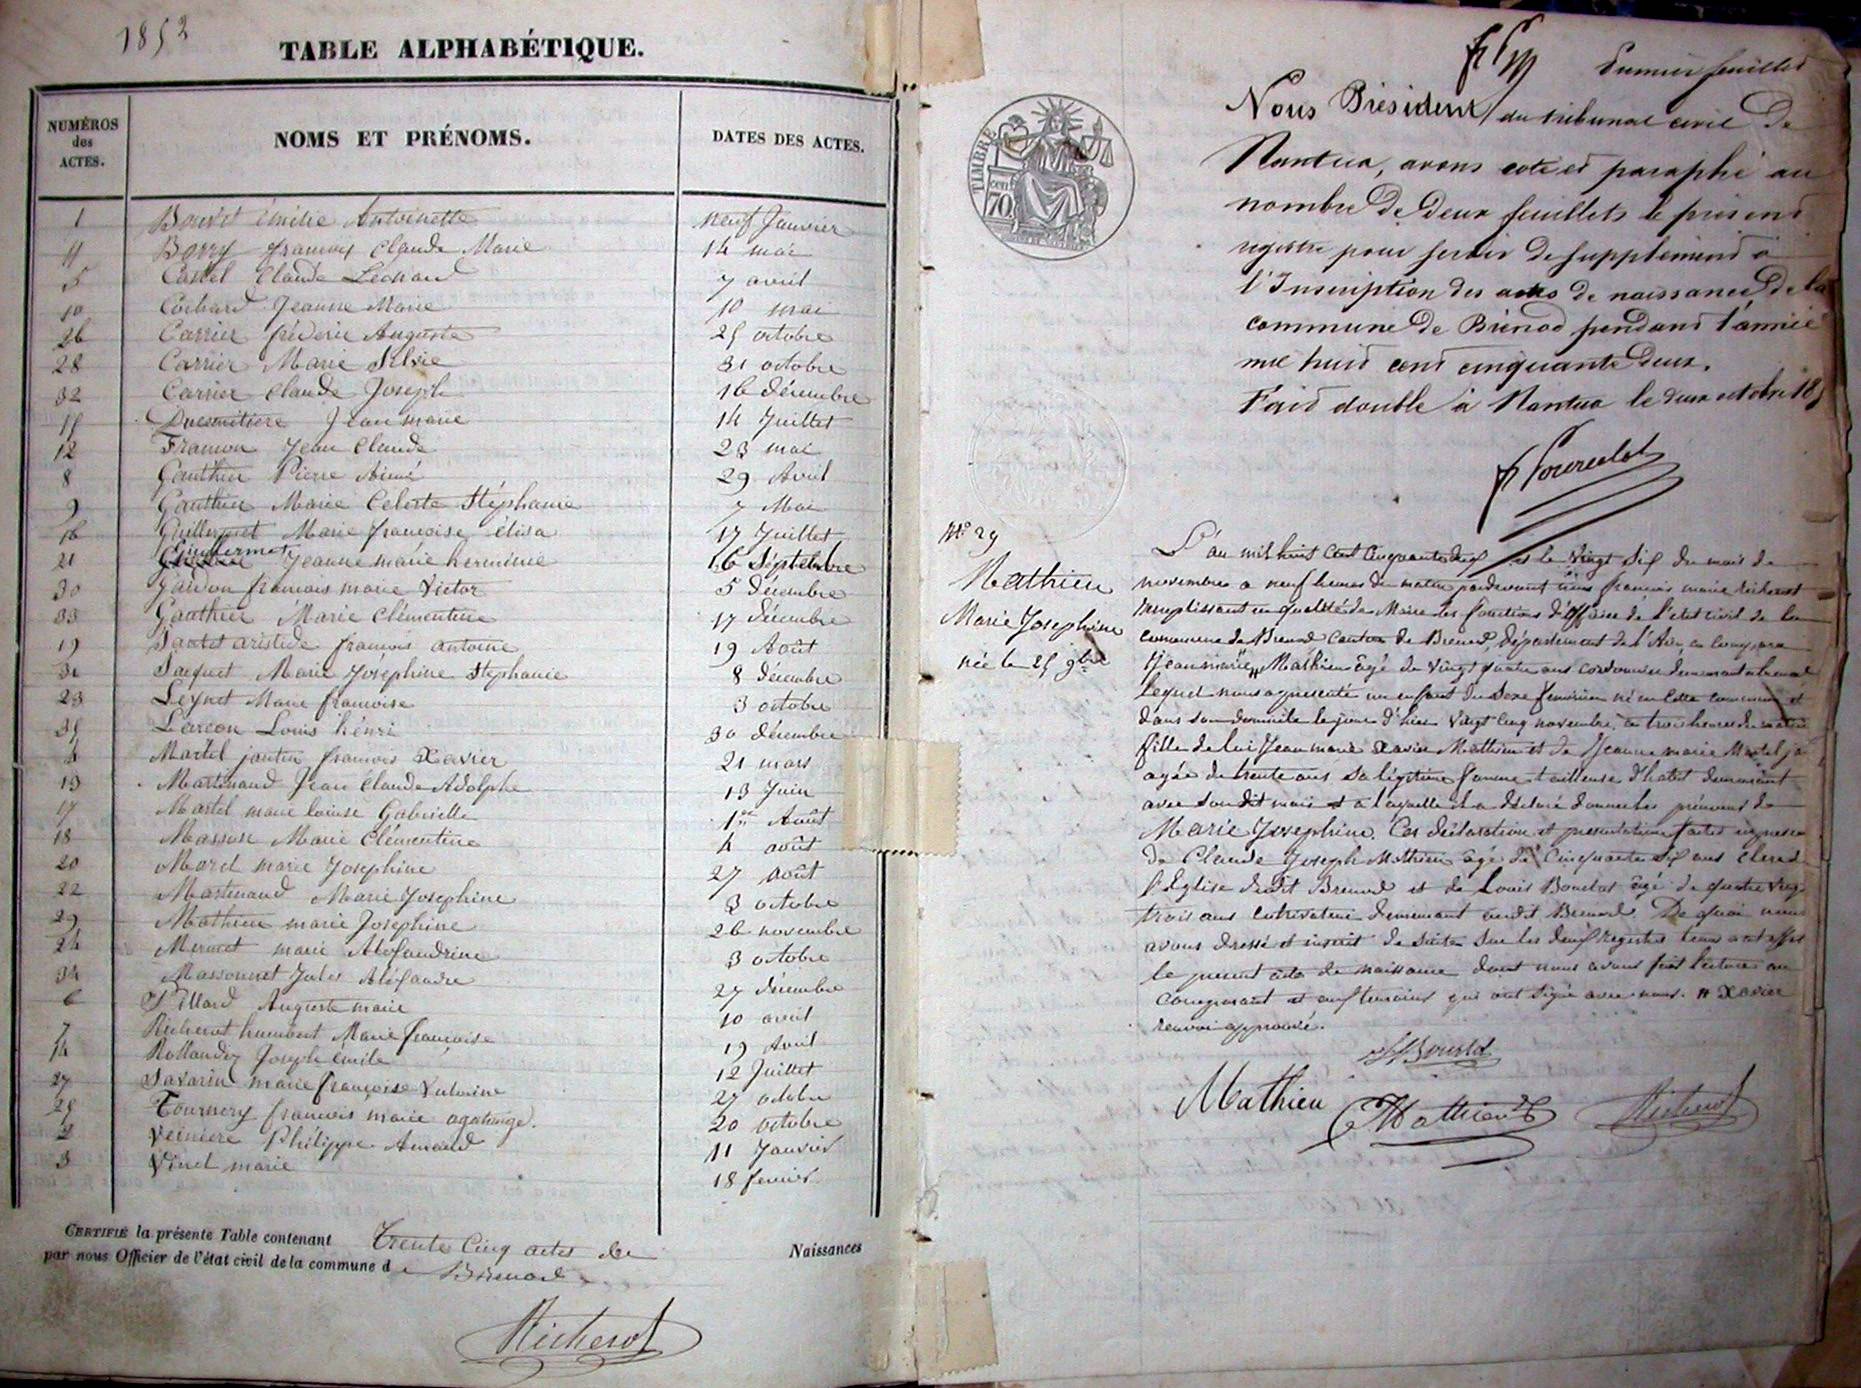 1852
TABLE ALPHABÉTIQUE.
NUMÉROS des ACTES. NOMS ET PRÉNOMS. DATES DES ACTES.
1 Bourdet émilie Antoinette neuf Janvier
11 Borry françois Claude Marie 14 mai
5 Castel Claude Léonard 7 avril
10 Cochard Jeanne Marie 10 mai
26 Carrier fréderic Auguste 25 octobre
28 Carrier Marie Silvie 31 octobre
32 Carrier Claude Joseph 16 décembre
15 Jean marie 14 Juillet
12 Jean Claude 23 mai
8 Gauthier Pierre Aimé 29 Avril
9 Gauthier Marie Celeste Stéphanie 7 Mai
16 Guillermet Marie françoise élisa 17 Juillet
21 Guillermet Jeanne marie herminie 16 Septembre
30 françois marie Victor 5 décembre
33 Gauthier Marie Clémentine 17 décembre
19 aristide françois antoine 19 Août
31 Jacquet Marie Joséphine Stéphanie 8 décembre
23 Leynet Marie francoise 3 octobre
35 Larcon Louis hénri 30 décembre
4 Martel françois Xavier 21 mars
13 Martinand Jean Claude Adolphe 13 Juin
17 Martel marie louise Gabrielle 1er Août
18 Marie Clémentine 4 août
20 Morel marie Josephine 27 Août
22 Martinand Marie Josephine 3 octobre
29 Mathieu marie Josephine 26 novembre
24 Mermet marie Aléxandrine 3 octobre
34 Massonnet Jules Aléxandre 27 décembre
6 Pillard Auguste marie 10 avril
7 Richerot Marie françoise 19 Avril
14 Rollandez Joseph émile 12 Juillet
27 Savarin marie françoise 27 octobre
25 Tournery francois marie 20 octobre
2 Philippe Armand 11 Janvier
3 Vinet marie 18 fevrier
CERTIFIÉ la présente Table contenant Trente Cinq actes de Naissances
par nous Officier de l'état civil de la commune d e Brénod
Richerot
TIMBRE
70
Premier feuillet
Nous Président du tribunal civil de
Nantua, avons coté et paraphé au
nombre de deux feuillets le présent
registre pour servir de supplément à
l'Inscription des actes de naissance de la
commune de Brénod pendant l'année
mil huit cent cinquante deux.
Fait double à Nantua le deux octobre 185
No 29
Mathieu
Marie Josephine
née le 25 9bre
L'an mil huit Cent Cinquante deux et le Vingt Six du mois de
novembre a neuf heures du matin pardevant nous françois marie Richerot
remplissant en qualité de Maire les fonctions d'officier de l'etat civil de la
commune de Brenod Canton de Brenod, département de l'Ain a comparu
Jean marie " Mathieu âgé de Vingt quatre ans cordonnier demeurant a brenod
lequel nous a presenté un enfant du Sexe feminin né en Cette commune et
dans son domicile le jour d'hier Vingt Cinq novembre, a trois heures du matin
fille de lui Jean marie Xavier Mathieu et de Jeanne marie Martel
agée de trente ans Sa légitime femme tailleuse d'habit demeurant
avec Son dit mari et a laquelle il a déclaré donner les prénoms de
Marie Josephine. Ces déclaration et presentation faites en presence
de Claude Joseph Mathieu agé de Cinquante Six ans clerc de
l'Eglise dudit Brenod et de Louis Bourdat âgé de quatre Vingt
trois ans cultivateur demeurant audit Brenod. De quoi nous
avons dressé et inscrit de Suite Sur les deux registres tenus a cet effet
le present acte de naissance dont nous avons fait lecture au
comparant et aux temoins qui ont Signé avec nous. " Xavier
renvoi approuvé.
Mathieu Mathieu Richerot